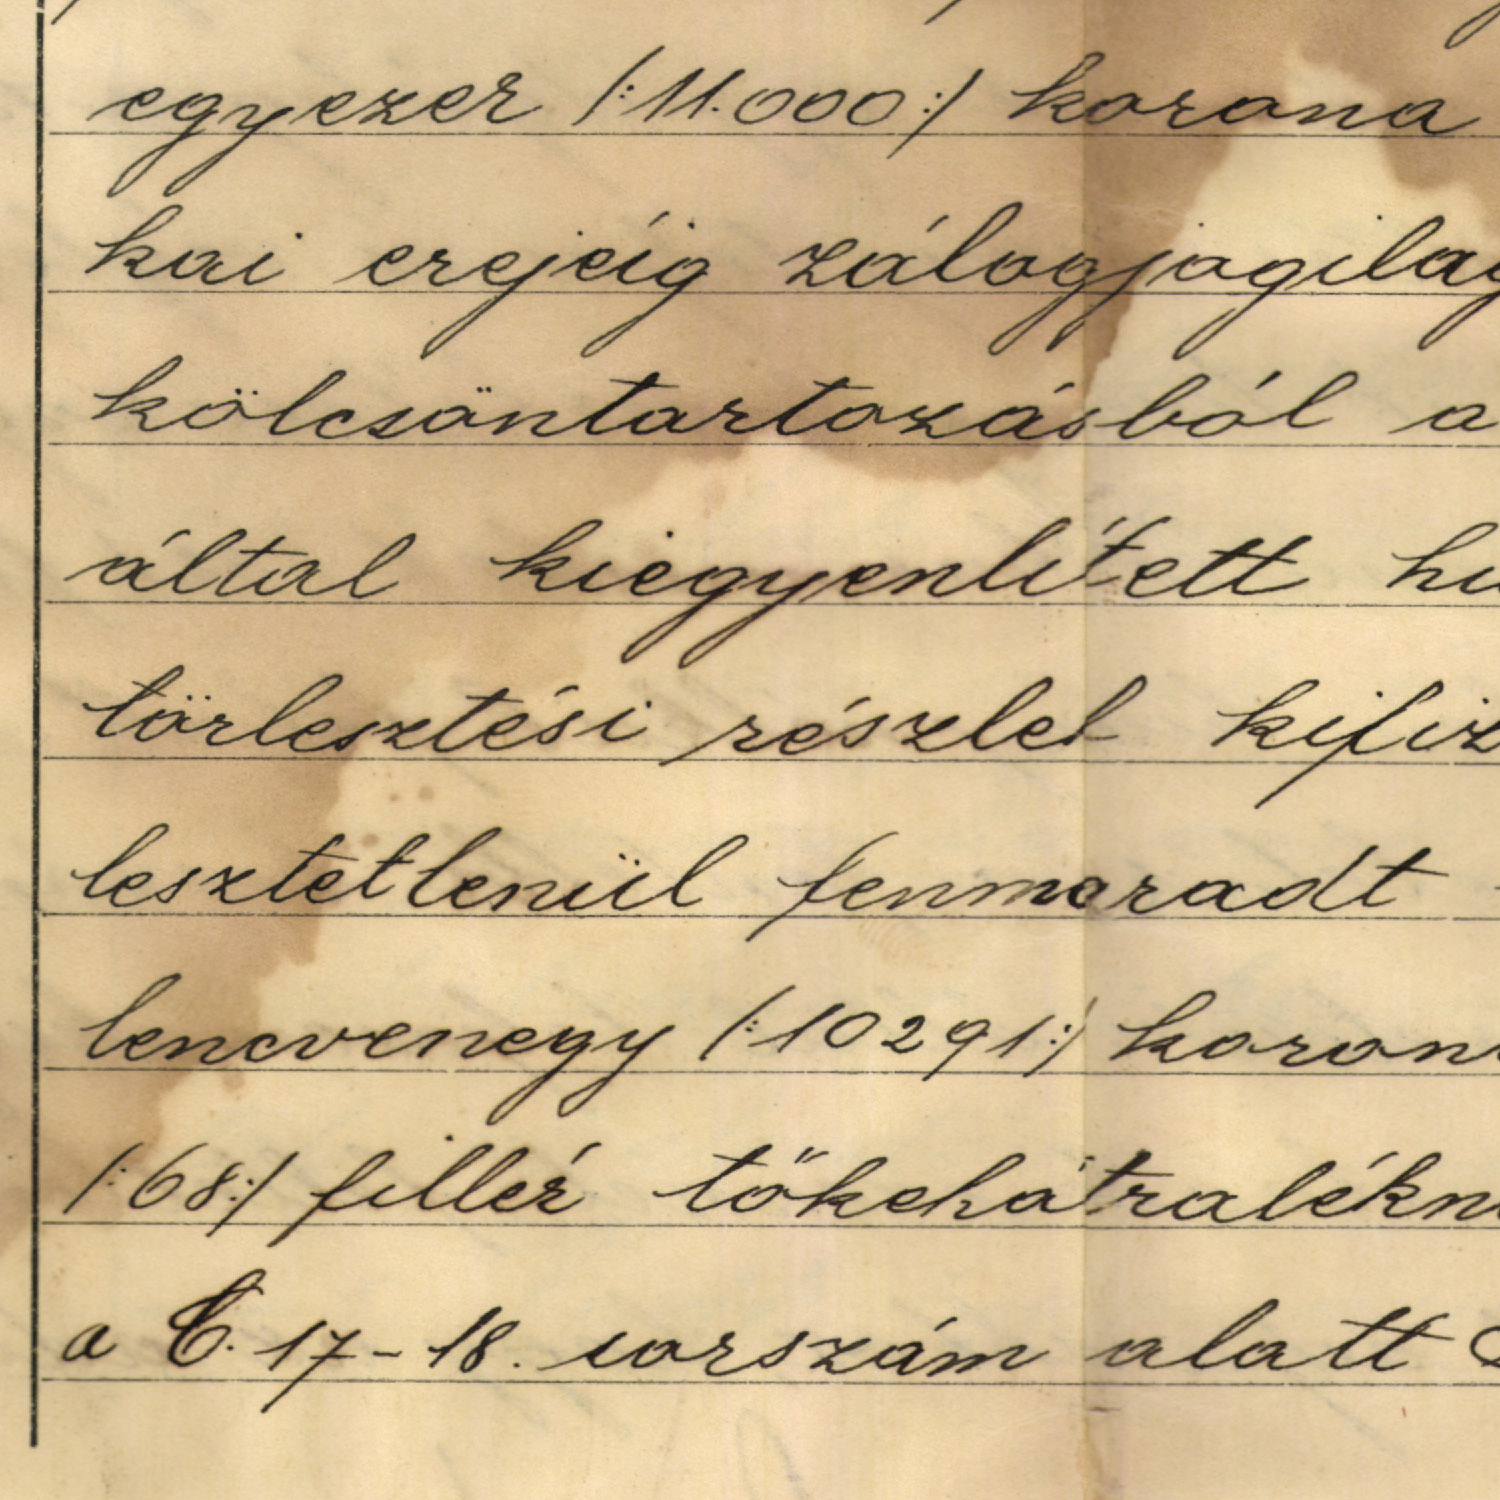 egyezer /:11.000:/ korona
kai erejéig zálogjogilag
kölcsöntartozásból a
által kiegyenlített
törlesztési részlet
lesztetlenül fenmaradt
lencvenegy /:10291:/ koron
/:68:/ fillér tőkehátralékn
a C. 17-18. sorszám alatt